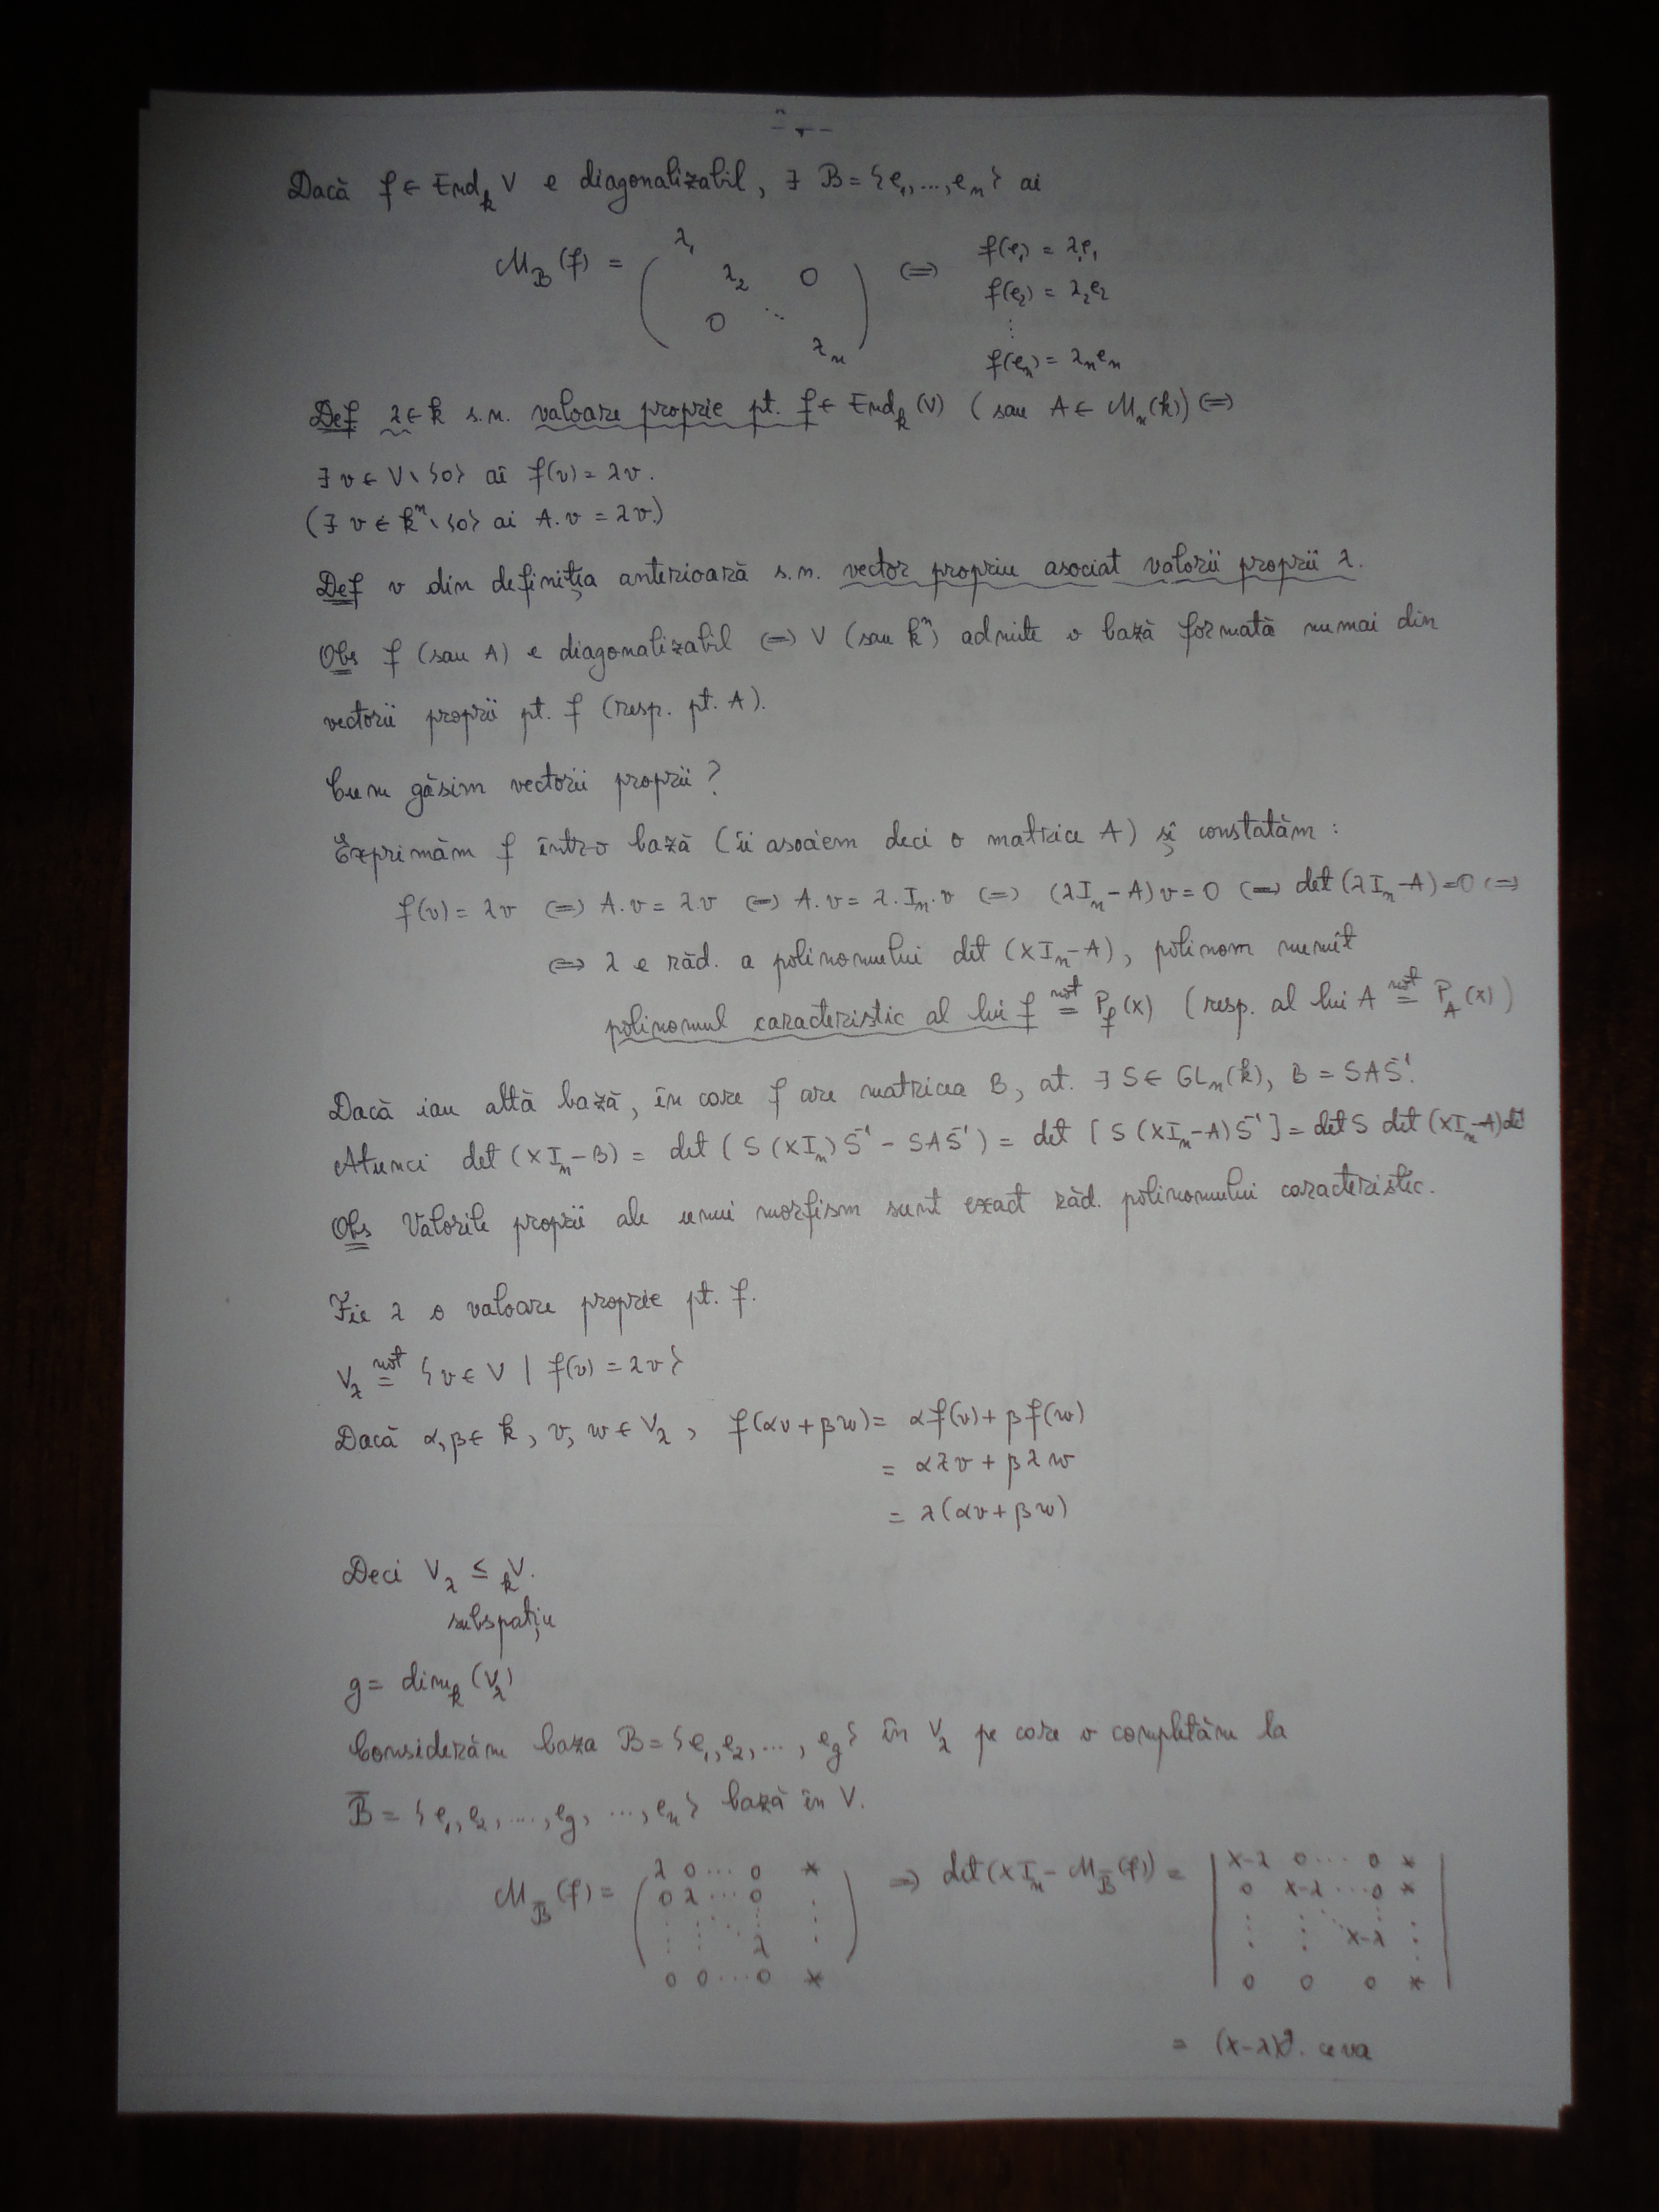 Dacă f ∈ End_k V e diagonalizabil, ∃ B = {e_1, ..., e_n} aî
M_B(f) = ( λ_1 λ_2 0 0 ⋱ λ_n ) ⟺ f(e_1) = λ_1e_1
f(e_2) = λ_2e_2
⋮
f(e_n) = λ_ne_n
Def λ ∈ k s.n. valoare proprie pt. f ∈ End_k(V) (sau A ∈ M_n(k)) ⟺
∃ v ∈ V \ {0} aî f(v) = λv.
(∃ v ∈ k^n \ {0} aî A.v = λv.)
Def v din definiția anterioară s.n. vector propriu asociat valorii proprii λ.
Obs f (sau A) e diagonalizabil ⟺ V (sau k^n) admite o bază formată numai din
vectorii proprii pt. f (resp. pt. A).
Cum găsim vectorii proprii?
Exprimăm f într-o bază (îi asociem deci o matrice A) și constatăm :
f(v) = λv ⟺ A.v = λ.v ⟺ A.v = λ.I_n.v ⟺ (λI_n − A) v = 0 ⟺ det (λI_n − A) = 0 ⟺
⟺ λ e răd. a polinomului det (XI_n − A), polinom numit
polinomul caracteristic al lui f not= P_f(x) (resp. al lui A not= P_A(x))
Dacă iau altă bază, în care f are matricea B, at. ∃ S ∈ GL_n(k), B = SAS^-1.
Atunci det (XI_n − B) = det (S(XI_n)S^-1 − SAS^-1) = det [S(XI_n − A)S^-1] = det S det (XI_n − A) de
Obs Valorile proprii ale unui morfism sunt exact răd. polinomului caracteristic.
Fie λ o valoare proprie pt. f.
V_λ not= {v ∈ V | f(v) = λv}
Dacă α, β ∈ k, v, w ∈ V_λ, f(αv + βw) = αf(v) + βf(w)
= αλv + βλw
= λ(αv + βw)
Deci V_λ ≤ _kV.
subspațiu
g = dim_k(V_λ)
Considerăm baza B = {e_1, e_2, ..., e_g} în V_λ pe care o completăm la
B̅ = {e_1, e_2, ..., e_g, ..., e_n} bază în V.
M_B̅(f) = ( λ 0 ... 0 * ⇒ det (XI_n − M_B̅(f)) = | X−λ 0 ... 0 *
0 λ ... 0 . 0 X−λ ... 0 *
⋮ ⋮ ⋱ ⋮ ⋮ ⋮ ⋱ ⋮
λ . X−λ .
0 0 ... 0 * ) 0 0 0 * |
= (X−λ)^g . ceva